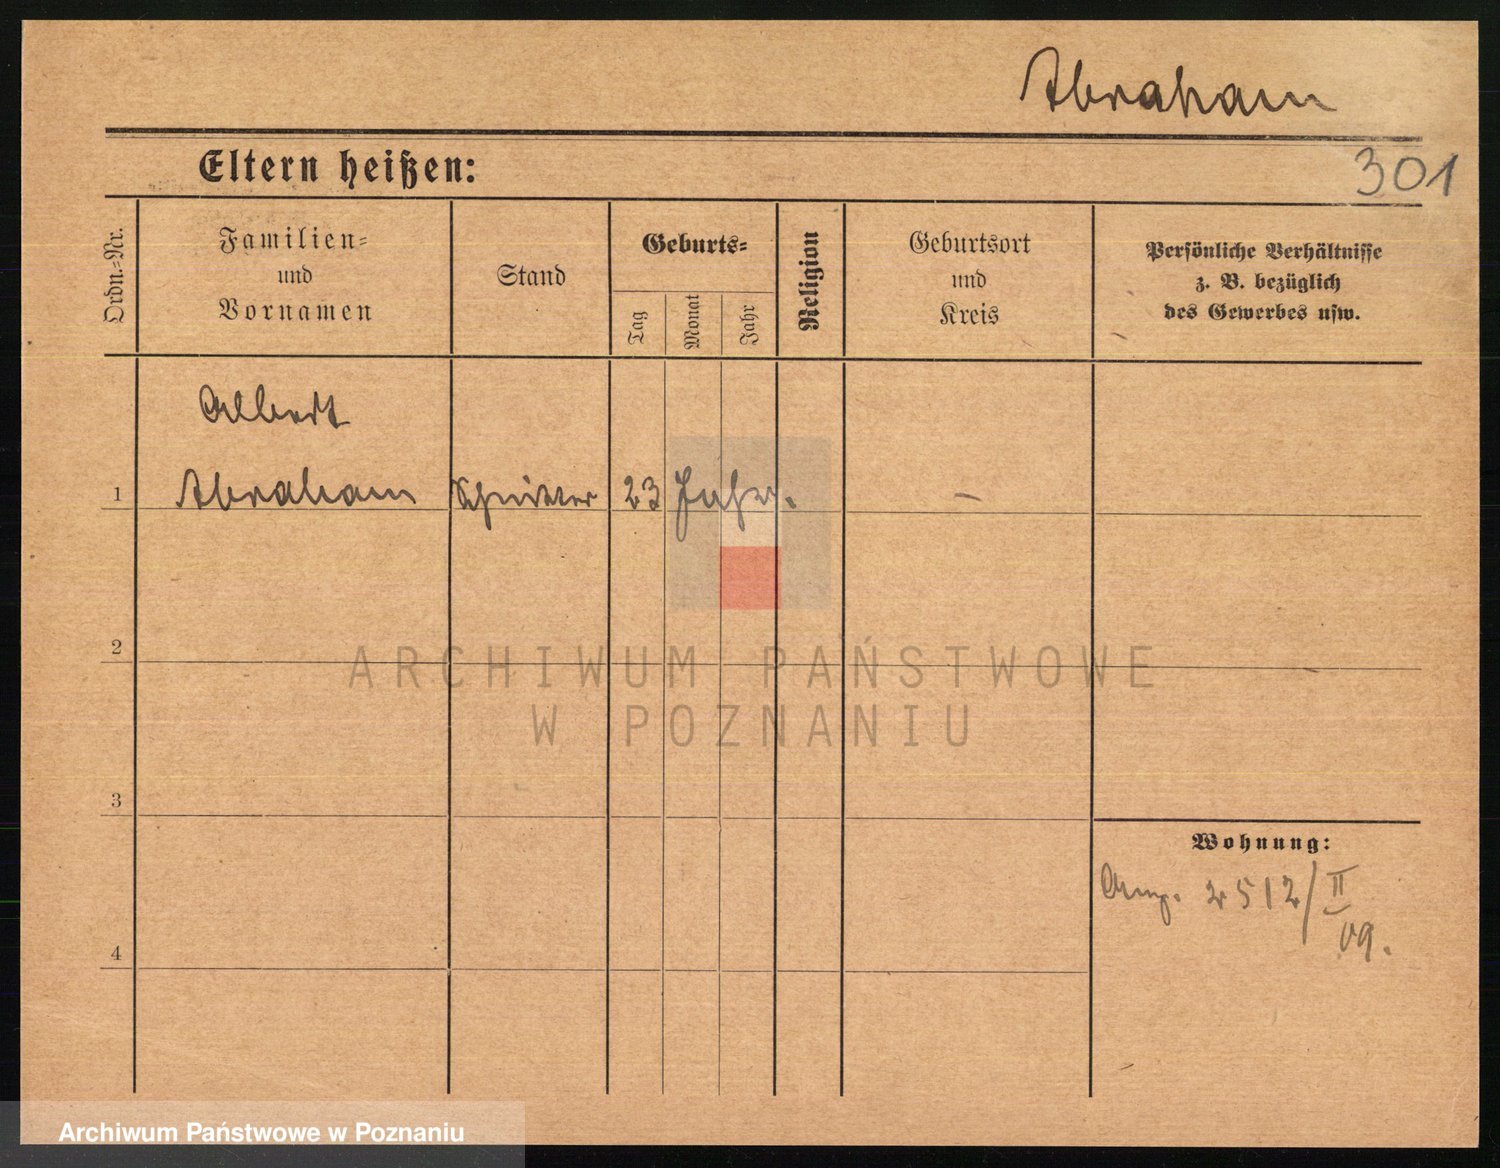 Abraham
Eltern heißen:
301
Ordn.-Nr.
Familien-
und
Vornamen
Stand
Geburts-
Tag
Monat
Jahr
Religion
Geburtsort
und
Kreis
Persönliche Verhältnisse
z. B. bezüglich
des Gewerbes usw.
Albert
1 Abraham Schnitter 23 Jahr. –
2
3
4
Wohnung:
2512/II
09.
ARCHIWUM PAŃSTWOWE
W POZNANIU
Archiwum Państwowe w Poznaniu